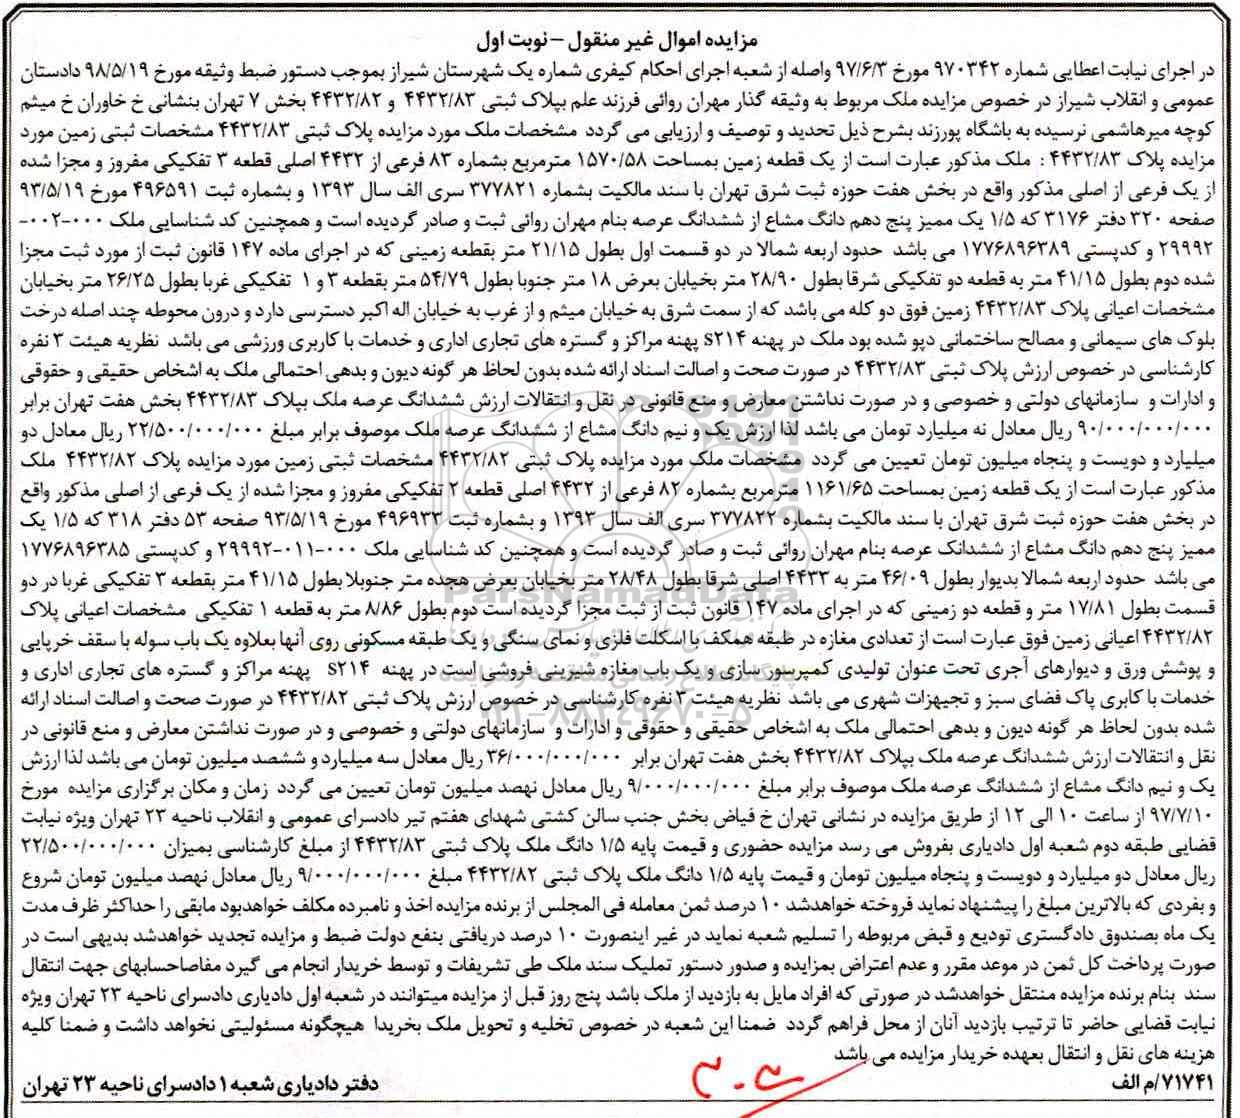 مزایده اموال غیر منقول – نوبت اول
در اجرای نیابت اعطایی شماره ۹۷۰۳۴۲ مورخ ۹۷/۶/۳ واصله از شعبه اجرای احکام کیفری شماره یک شهرستان شیراز بموجب دستور ضبط وثیقه مورخ ۹۸/۵/۱۹ دادستان
عمومی و انقلاب شیراز در خصوص مزایده ملک مربوط به وثیقه گذار مهران روائی فرزند علم بپلاک ثبتی ۴۴۳۲/۸۳ و ۴۴۳۲/۸۲ بخش ۷ تهران بنشانی خ خاوران خ میثم
کوچه میرهاشمی نرسیده به باشگاه پورزند بشرح ذیل تحدید و توصیف و ارزیابی می گردد مشخصات ملک مورد مزایده پلاک ثبتی ۴۴۳۲/۸۳ مشخصات ثبتی زمین مورد
مزایده پلاک ۴۴۳۲/۸۳ : ملک مذکور عبارت است از یک قطعه زمین بمساحت ۱۵۷۰/۵۸ مترمربع بشماره ۸۳ فرعی از ۴۴۳۲ اصلی قطعه ۳ تفکیکی مفروز و مجزا شده
از یک فرعی از اصلی مذکور واقع در بخش هفت حوزه ثبت شرق تهران با سند مالکیت بشماره ۳۷۷۸۲۱ سری الف سال ۱۳۹۳ و بشماره ثبت ۴۹۶۵۹۱ مورخ ۹۳/۵/۱۹
صفحه ۲۲۰ دفتر ۳۱۷۶ که ۱/۵ یک ممیز پنج دهم دانگ مشاع از ششدانگ عرصه بنام مهران روائی ثبت و صادر گردیده است و همچنین کد شناسایی ملک ۰۰۰-۰۰۲-
۲۹۹۹۲ و کدپستی ۱۷۷۶۸۹۶۳۸۹ می باشد حدود اربعه شمالا در دو قسمت اول بطول ۲۱/۱۵ متر بقطعه زمینی که در اجرای ماده ۱۴۷ قانون ثبت از مورد ثبت مجزا
شده دوم بطول ۴۱/۱۵ متر به قطعه دو تفکیکی شرقا بطول ۲۸/۹۰ متر بخیابان بعرض ۱۸ متر جنوبا بطول ۵۴/۷۹ متر بقطعه ۳ و ۱ تفکیکی غربا بطول ۲۶/۲۵ متر بخیابان
مشخصات اعیانی پلاک ۴۴۳۲/۸۳ زمین فوق دو کله می باشد که از سمت شرق به خیابان میثم و از غرب به خیابان اله اکبر دسترسی دارد و درون محوطه چند اصله درخت
بلوک های سیمانی و مصالح ساختمانی دپو شده بود ملک در پهنه S۲۱۴ پهنه مراکز و گستره های تجاری اداری و خدمات با کاربری ورزشی می باشد نظریه هیئت ۳ نفره
کارشناسی در خصوص ارزش پلاک ثبتی ۴۴۳۲/۸۳ در صورت صحت و اصالت اسناد ارائه شده بدون لحاظ هر گونه دیون و بدهی احتمالی ملک به اشخاص حقیقی و حقوقی
و ادارات و سازمانهای دولتی و خصوصی و در صورت نداشتن معارض و منع قانونی در نقل و انتقالات ارزش ششدانگ عرصه ملک بپلاک ۴۴۳۲/۸۳ بخش هفت تهران برابر
۹۰/۰۰۰/۰۰۰/۰۰۰ ریال معادل نه میلیارد تومان می باشد لذا ارزش یک و نیم دانگ مشاع از ششدانگ عرصه ملک موصوف برابر مبلغ ۲۲/۵۰۰/۰۰۰/۰۰۰ ریال معادل دو
میلیارد و دویست و پنجاه میلیون تومان تعیین می گردد مشخصات ملک مورد مزایده پلاک ثبتی ۴۴۳۲/۸۲ مشخصات ثبتی زمین مورد مزایده پلاک ۴۴۳۲/۸۲ ملک
مذکور عبارت است از یک قطعه زمین بمساحت ۱۱۶۱/۶۵ مترمربع بشماره ۸۲ فرعی از ۴۴۳۲ اصلی قطعه ۲ تفکیکی مفروز و مجزا شده از یک فرعی از اصلی مذکور واقع
در بخش هفت حوزه ثبت شرق تهران با سند مالکیت بشماره ۳۷۷۸۲۲ سری الف سال ۱۳۹۳ و بشماره ثبت ۴۹۶۹۳۳ مورخ ۹۳/۵/۱۹ صفحه ۵۳ دفتر ۳۱۸ که ۱/۵ یک
ممیز پنج دهم دانگ مشاع از ششدانک عرصه بنام مهران روائی ثبت و صادر گردیده است و همچنین کد شناسایی ملک ۰۰۰-۰۱۱-۲۹۹۹۲ و کدپستی ۱۷۷۶۸۹۶۳۸۵
می باشد حدود اربعه شمالا بدیوار بطول ۴۶/۰۹ متر به ۴۴۳۳ اصلی شرقا بطول ۲۸/۴۸ متر بخیابان بعرض هجده متر جنوبلا بطول ۴۱/۱۵ متر بقطعه ۳ تفکیکی غربا در دو
قسمت بطول ۱۷/۸۱ متر و قطعه دو زمینی که در اجرای ماده ۱۴۷ قانون ثبت از ثبت مجزا گردیده است دوم بطول ۸/۸۶ متر به قطعه ۱ تفکیکی مشخصات اعیانی پلاک
۴۴۳۲/۸۲ اعیانی زمین فوق عبارت است از تعدادی مغازه در طبقه همکف با اسکلت فلزی و نمای سنگی و یک طبقه مسکونی روی آنها بعلاوه یک باب سوله با سقف خرپایی
و پوشش ورق و دیوارهای آجری تحت عنوان تولیدی کمپرسور سازی و یک باب مغازه شیرینی فروشی است در پهنه S۲۱۴ پهنه مراکز و گستره های تجاری اداری و
خدمات با کابری پاک فضای سبز و تجیهزات شهری می باشد نظریه هیئت ۳ نفره کارشناسی در خصوص ارزش پلاک ثبتی ۴۴۳۲/۸۲ در صورت صحت و اصالت اسناد ارائه
شده بدون لحاظ هر گونه دیون و بدهی احتمالی ملک به اشخاص حقیقی و حقوقی و ادارات و سازمانهای دولتی و خصوصی و در صورت نداشتن معارض و منع قانونی در
نقل و انتقالات ارزش ششدانگ عرصه ملک بپلاک ۴۴۳۲/۸۲ بخش هفت تهران برابر ۳۶/۰۰۰/۰۰۰/۰۰۰ ریال معادل سه میلیارد و ششصد میلیون تومان می باشد لذا ارزش
یک و نیم دانگ مشاع از ششدانگ عرصه ملک موصوف برابر مبلغ ۹/۰۰۰/۰۰۰/۰۰۰ ریال معادل نهصد میلیون تومان تعیین می گردد زمان و مکان برگزاری مزایده مورخ
۹۷/۷/۱۰ از ساعت ۱۰ الی ۱۲ از طریق مزایده در نشانی تهران خ فیاض بخش جنب سالن کشتی شهدای هفتم تیر دادسرای عمومی و انقلاب ناحیه ۲۳ تهران ویژه نیابت
قضایی طبقه دوم شعبه اول دادیاری بفروش می رسد مزایده حضوری و قیمت پایه ۱/۵ دانگ ملک پلاک ثبتی ۴۴۳۲/۸۳ از مبلغ کارشناسی بمیزان ۲۲/۵۰۰/۰۰۰/۰۰۰
ریال معادل دو میلیارد و دویست و پنجاه میلیون تومان و قیمت پایه ۱/۵ دانگ ملک پلاک ثبتی ۴۴۳۲/۸۲ مبلغ ۹/۰۰۰/۰۰۰/۰۰۰ ریال معادل نهصد میلیون تومان شروع
و بفردی که بالاترین مبلغ را پیشنهاد نماید فروخته خواهدشد ۱۰ درصد ثمن معامله فی المجلس از برنده مزایده اخذ و نامبرده مکلف خواهدبود مابقی را حداکثر ظرف مدت
یک ماه بصندوق دادگستری تودیع و قبض مربوطه را تسلیم شعبه نماید در غیر اینصورت ۱۰ درصد دریافتی بنفع دولت ضبط و مزایده تجدید خواهدشد بدیهی است در
صورت پرداخت کل ثمن در موعد مقرر و عدم اعتراض بمزایده و صدور دستور تملیک سند ملک طی تشریفات و توسط خریدار انجام می گیرد مفاصاحسابهای جهت انتقال
سند بنام برنده مزایده منتقل خواهدشد در صورتی که افراد مایل به بازدید از ملک باشد پنج روز قبل از مزایده میتوانند در شعبه اول دادیاری دادسرای ناحیه ۲۳ تهران ویژه
نیابت قضایی حاضر تا ترتیب بازدید آنان از محل فراهم گردد ضمنا این شعبه در خصوص تخلیه و تحویل ملک بخریدا هیچگونه مسئولیتی نخواهد داشت و ضمنا کلیه
هزینه های نقل و انتقال بعهده خریدار مزایده می باشد
۷۱۷۴۱/م الف
دفتر دادیاری شعبه ۱ دادسرای ناحیه ۲۳ تهران
ParsNamadData
۰۲۱-۸۸۳۴۹۶۷۰-۵